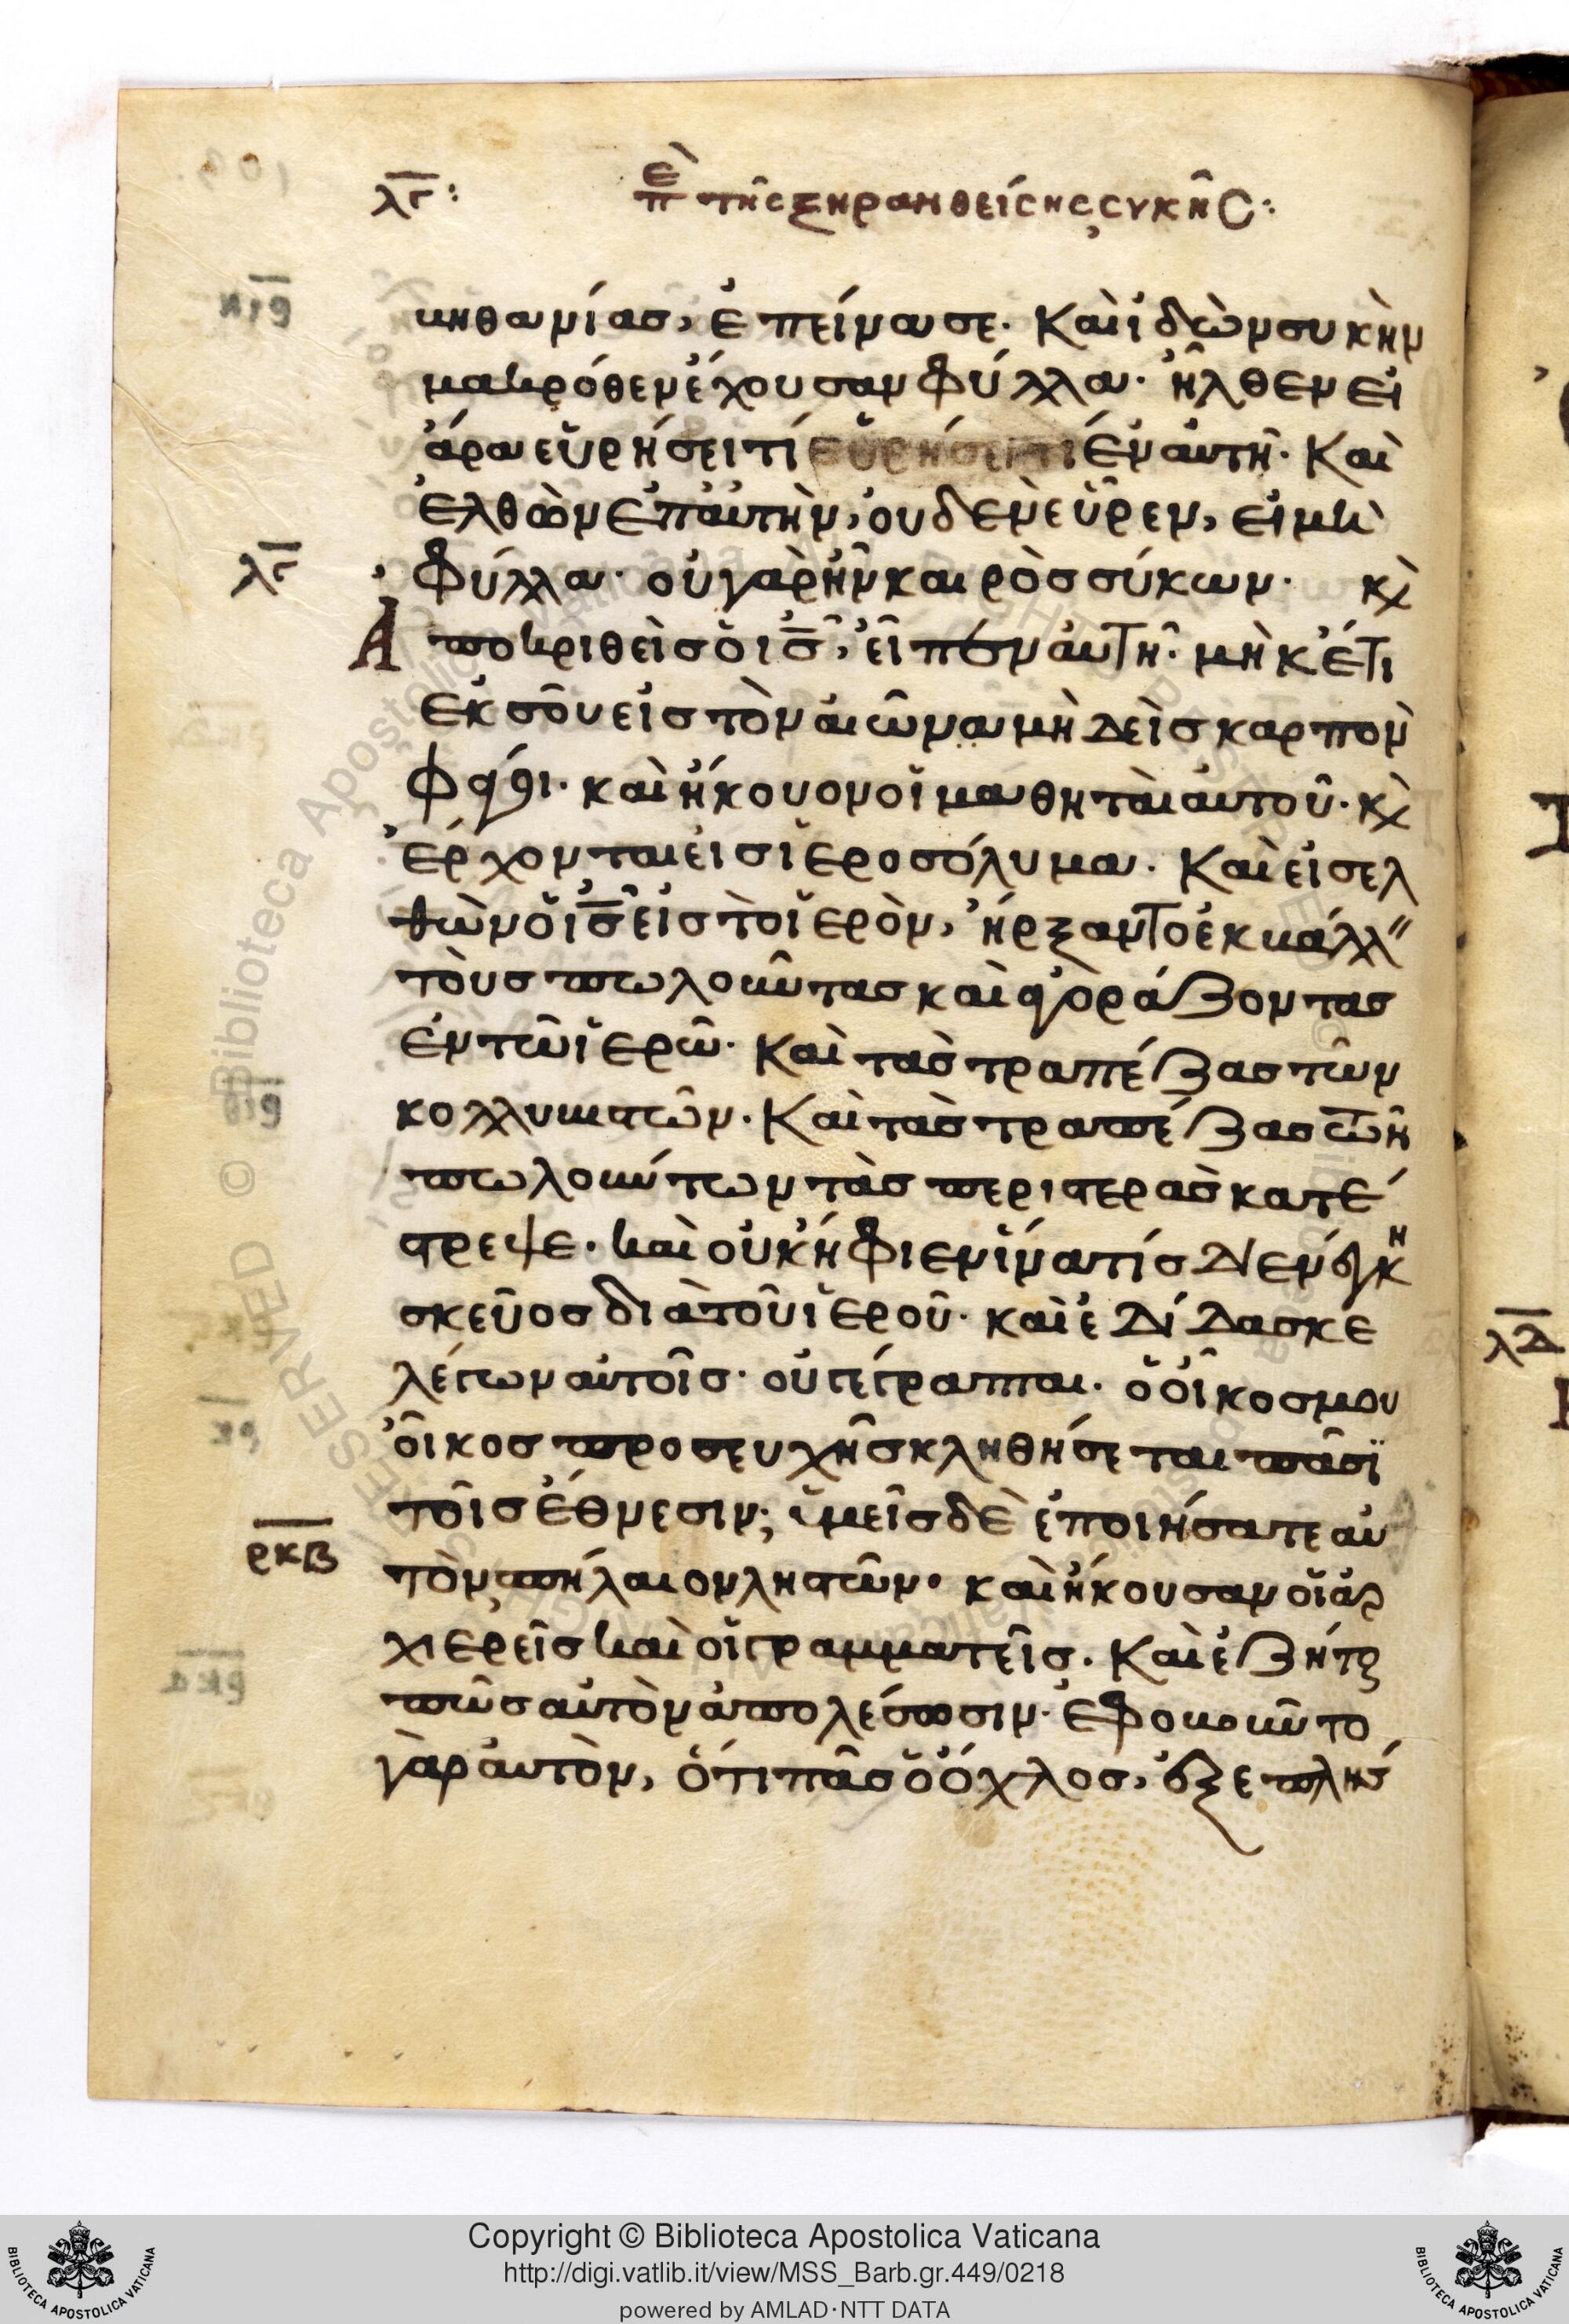 λγ: ἐπὶ τῆς ξηρανθείσης συκῆς:
βηθανίας, ἐπείνασε. Καὶ ἰδὼν συκὴν
μακρόθεν ἔχουσαν φύλλα. ἦλθεν εἰ
ἄρα εὑρήσει τί εὑρήσει τι ἐν αὐτῆ. Καὶ
ἐλθὼν ἐπ αὐτὴν, οὐδὲν εὗρεν, εἰ μὴ
λγ φύλλα. οὐ γὰρ ἦν καιρὸσ σύκων. κ̀
Ἀποκριθεὶσ ὁ ις̅, εἶπεν αὐτῆ. μὴκέτι
ἐκ σοῦ εἰσ τὸν αἰῶνα μὴδεὶσ καρπὸν
φάγοι. καὶ ἤκουον οἱ μαθηταὶ αὐτοῦ. κ̀
ἔρχονται εἰσ ἱεροσόλυμα. Καὶ εἰσελ
θὼν ὁ ις̅ εἰσ τὸ ἱερὸν, ἤρξαντο ἐκβάλλ
τοὺσ πωλοῦντασ καὶ ἀγοράζοντασ
ἐν τῶ ἱερῶ. καὶ τὰσ τραπέζασ τῶν
κολλυβιστῶν. Καὶ τὰσ τραπέζασ τῶν
πωλούντων τὰσ περιστερὰσ κατέ
στρεψε. καὶ οὐκ ἤφιεν ἵνα τίσ διενέγκη
σκεῦοσ διὰ τοῦ ἱεροῦ. καὶ ἐδίδασκε
λέγων αὐτοῖσ. οὐ γέγραπται. ὁ οἶκοσ μου
οἶκοσ προσευχῆσ κληθήσεται πᾶσϊ
τοῖσ ἔθνεσιν; ὑμεῖσ δὲ ἐποιήσατε αὐ
ρκβ τὸν σπήλαιον ληστῶν. καὶ ἤκουσαν οἱ ἀρ
χιερεῖσ καὶ οἱ γραμματεῖσ. Καὶ ἐζήτουν
πῶσ αὐτὸν ἀπολέσωσιν. ἐφοβοῦντο
γὰρ αὐτὸν, ὅτι πᾶσ ὁ ὄχλοσ, ἐξεπλήσ
Copyright © Biblioteca Apostolica Vaticana
http://digi.vatlib.it/view/MSS_Barb.gr.449/0218
powered by AMLAD·NTT DATA